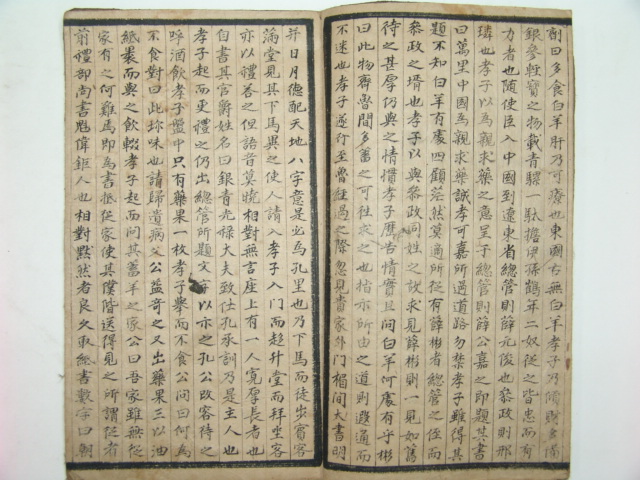 劑曰多食白羊肝乃可療也東國古無白羊孝子乃傾財多備
銀參輕寶之物載青騾一馱擔伊孫鶴年二奴從之皆忠而有
力者也隨使臣入中國到遼東省總管則薛元俊也參政則那
璘也孝子以爲親求藥之意呈于總管則薛公嘉之即題其書
曰萬里中國爲親求藥誠孝可嘉所過道路勿禁孝子雖得其
題不知白羊有處四顧茫然莫適所從有薛彬者總管之侄而
參政之壻也孝子以與參政同姓之故求見薛彬則一見如舊
待之甚厚仍與之情懽孝子俱告情實且問白羊何處有乎彬
曰此物齊魯間多畜之可往求之也指示所由之道則遐逼而
不迷也孝子遂行至曹經過之際忽見貴家外門楣間大書明
并日月德配天地八字意是必爲孔里也乃下馬而徒步賓客
滿堂見其下馬與之使人請入孝子入門而趍升堂而拜坐客
亦以禮答之但語音莫曉相對無言座上有一人寬厚長者也
自書其官爵姓名曰銀青光祿大夫致仕孔承訓乃是主人也
孝子起而更禮之仍出總管所題文字以示之孔公改容待之
呼酒飲孝子盤中只有藥果一枚孝子擧而不食公問曰何爲
不食對曰此珍味也請歸遺病父公益奇之又出藥果三以油
紙裹而與之飮輟孝子起而問其畜羊之家公曰吾家雖無從
家有之何難焉即爲書抵從家使其僕偕送得見之所謂從者
前禮部尚書魁偉鉅人也相對默然者良久取紙書數字曰朝